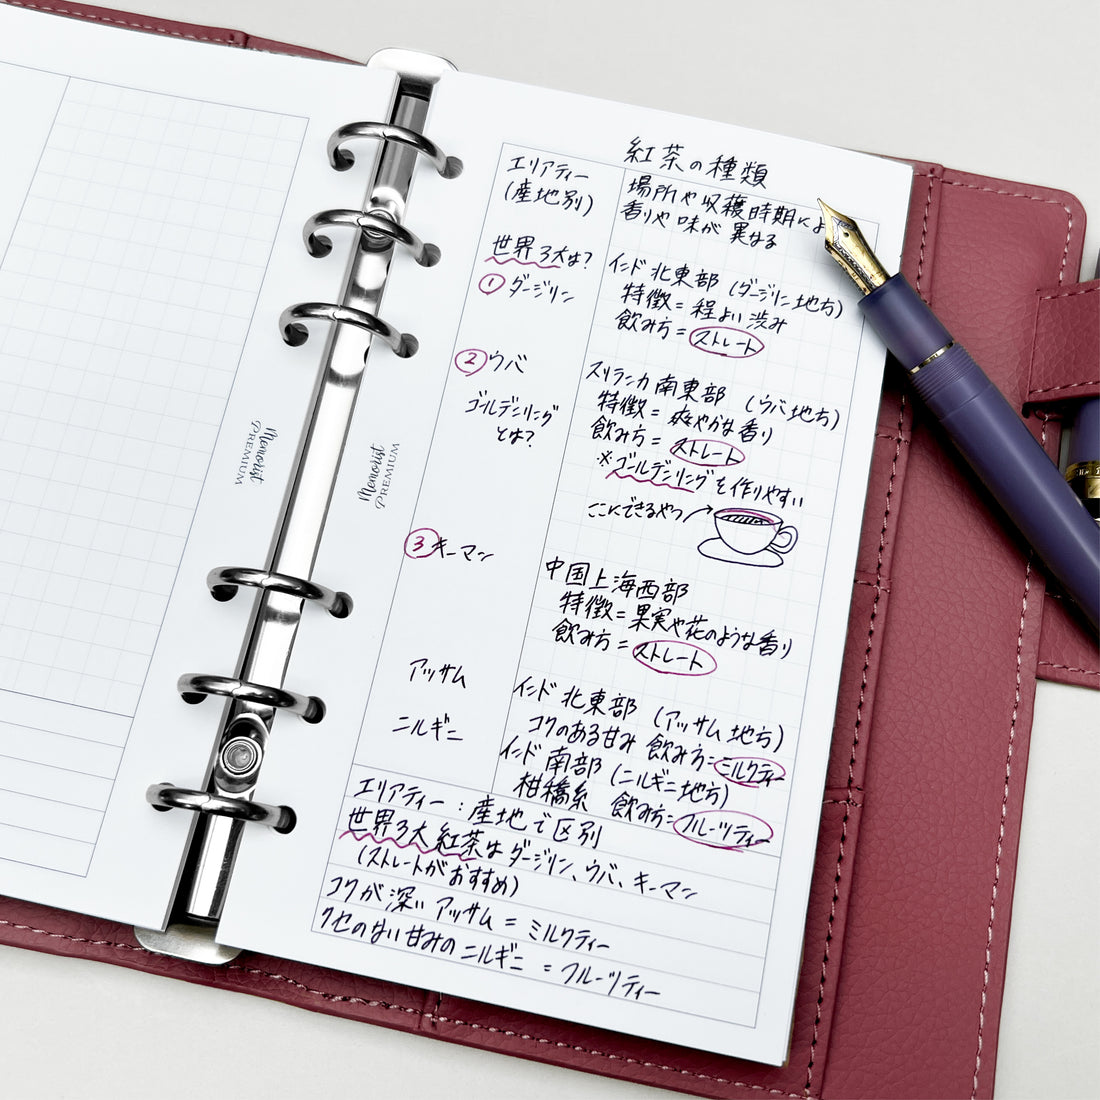 Memorist
PREMIUM
Memorist
PREMIUM
紅茶の種類
エリアティー
(産地別)
場所や収穫時期によ
香りや味が異なる
世界3大は?
① ダージリン
インド北東部 (ダージリン地方)
特徴=程よい渋み
飲み方=ストレート
② ウバ
ゴールデンリング
とは?
スリランカ南東部 (ウバ地方)
特徴=爽やかな香り
飲み方=ストレート
※ゴールデンリングを作りやすい
ここにできるやつ
③ キーマン
中国上海西部
特徴=果実や花のような香り
飲み方=ストレート
アッサム
インド北東部 (アッサム地方)
コクのある甘み 飲み方=ミルクティー
ニルギニ
インド南部 (ニルギニ地方)
柑橘系 飲み方=フルーツティー
エリアティー:産地で区別
世界3大紅茶はダージリン、ウバ、キーマン
(ストレートがおすすめ)
コクが深いアッサム=ミルクティー
クセのない甘みのニルギニ=フルーツティー